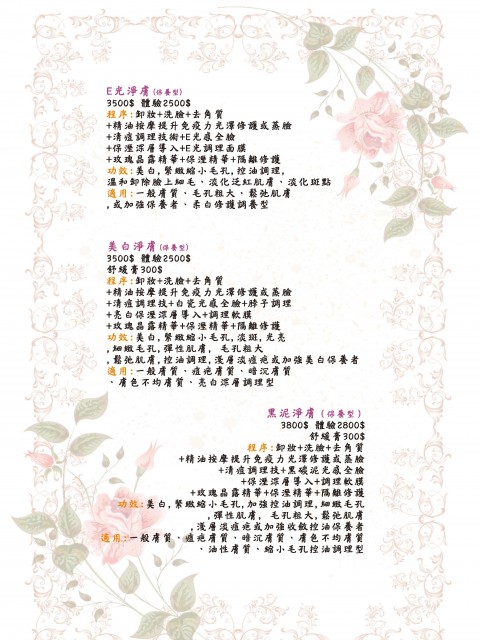 E光淨膚(保養型)
3500$ 體驗2500$
程序:卸妝+洗臉+去角質
+精油按摩提升免疫力光澤修護或蒸臉
+清痘調理技術+E光感全臉
+保溼深層導入+E光調理面膜
+玫瑰晶露精華+保溼精華+隔離修護
功效:美白,緊緻縮小毛孔,控油調理,
溫和卸除臉上細毛、淡化泛紅肌膚、淡化斑點
適用:一般膚質、毛孔粗大、鬆弛肌膚
,或加強保養者、柔白修護調養型
美白淨膚(保養型)
3500$ 體驗2500$
舒緩膏300$
程序:卸妝+洗臉+去角質
+精油按摩提升免疫力光澤修護或蒸臉
+清痘調理技+白瓷光感全臉+脖子調理
+亮白保溼深層導入+調理軟膜
+玫瑰晶露精華+保溼精華+隔離修護
功效:美白,緊緻縮小毛孔,淡斑,光亮
,細緻毛孔,彈性肌膚, 毛孔粗大
,鬆弛肌膚,控油調理,淺層淡痘疤或加強美白保養者
適用:一般膚質、痘疤膚質、暗沉膚質
、膚色不均膚質、亮白深層調理型
黑泥淨膚(保養型)
3800$ 體驗2800$
舒緩膏300$
程序:卸妝+洗臉+去角質
+精油按摩提升免疫力光澤修護或蒸臉
+清痘調理技+黑碳泥光感全臉
+保溼深層導入+調理軟膜
+玫瑰晶露精華+保溼精華+隔離修護
功效:美白,緊緻縮小毛孔,加強控油調理,細緻毛孔
,彈性肌膚, 毛孔粗大,鬆弛肌膚
,淺層淡痘疤或加強收斂控油保養者
適用:一般膚質、痘疤膚質、暗沉膚質、膚色不均膚質
、油性膚質、縮小毛孔控油調理型